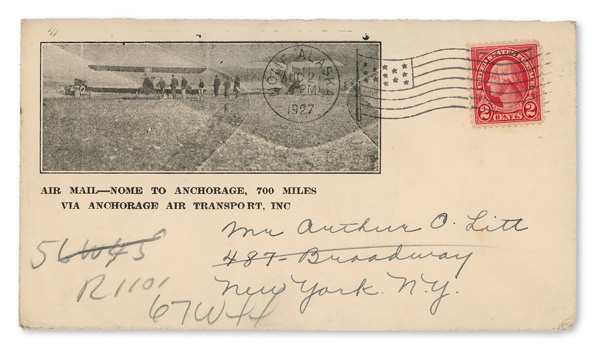 NOME ALASKA
AUG 2
PM
1927
UNITED STATES POSTAGE
2 2
CENTS
AIR MAIL—NOME TO ANCHORAGE, 700 MILES
VIA ANCHORAGE AIR TRANSPORT, INC
Mr Arthur O. Litt
487 Broadway
New York. N.Y.
56W45
R1101
67W44